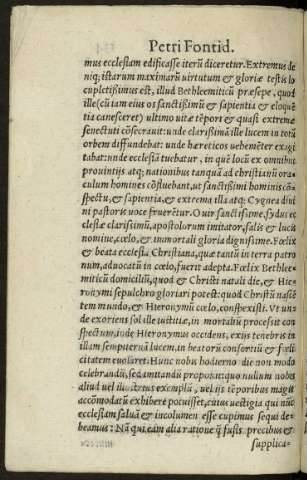 Petri Fontid.
mus ecclesiam edificasse iterũ diceretur. Extremus de
niq; istarum maximarũ uirtutum & gloriæ testis lo
cupletißimus est, illud Bethleemiticũ præsepe, quod
ille (cũ iam eius os sanctißimũ & sapientia & eloquẽ
tia canesceret) ultimo uitæ tẽpori & quasi extremæ
senectuti cõsecrauit: unde clarißima ille lucem in totũ
orbem diffundebat: unde hæreticos uehemẽter exagi
tabat: unde ecclesiã tuebatur, in quẽ locũ ex omnibus
prouintijs atq; nationibus tanquã ad christianũ ora=
culum homines cõfluebant, ut sanctißimi hominis cõ=
spectu, & sapientia, & extrema illa atq; Cygnea diui
ni pastoris uoce fruerẽtur. O uir sanctißime, sydus ec
clesiæ clarißimũ, apostolorum imitator, salis & lucis
nomine, cœlo, & immortali gloria dignißime. Fœlix
& beata ecclesia Christiana, quæ tantũ in terra patro
num, aduocatũ in cœlo, fuerit adepta. Fœlix Bethlee=
miticũ domiciliũ, quod & Christi natali die, & Hie=
ronymi sepulchro gloriari potest: quod Christũ nascẽ
tem mundo, & Hieronymũ cœlo, conspexisti. Vt un=
de exoriens sol ille iustitiæ, in mortaliũ processit con
spectum, inde Hieronymus occidens, exijs tenebris in
illam sempiternã lucem, in beatorũ consortiũ & fœli
citatem euolaret. Hunc nobis hodierno die non modo
celebrandũ, sed imitandũ proponit: quo nullum nobis
aliud uel illustrius exemplũ, uel ijs tẽporibus magis
accõmodatũ exhibere potuisset, cuius uestigia qui nũc
ecclesiam saluã & incolumen esse cupimus sequi de=
beamus: Nã qui eam alia ratione q̃ fusis precibus &
supplica=